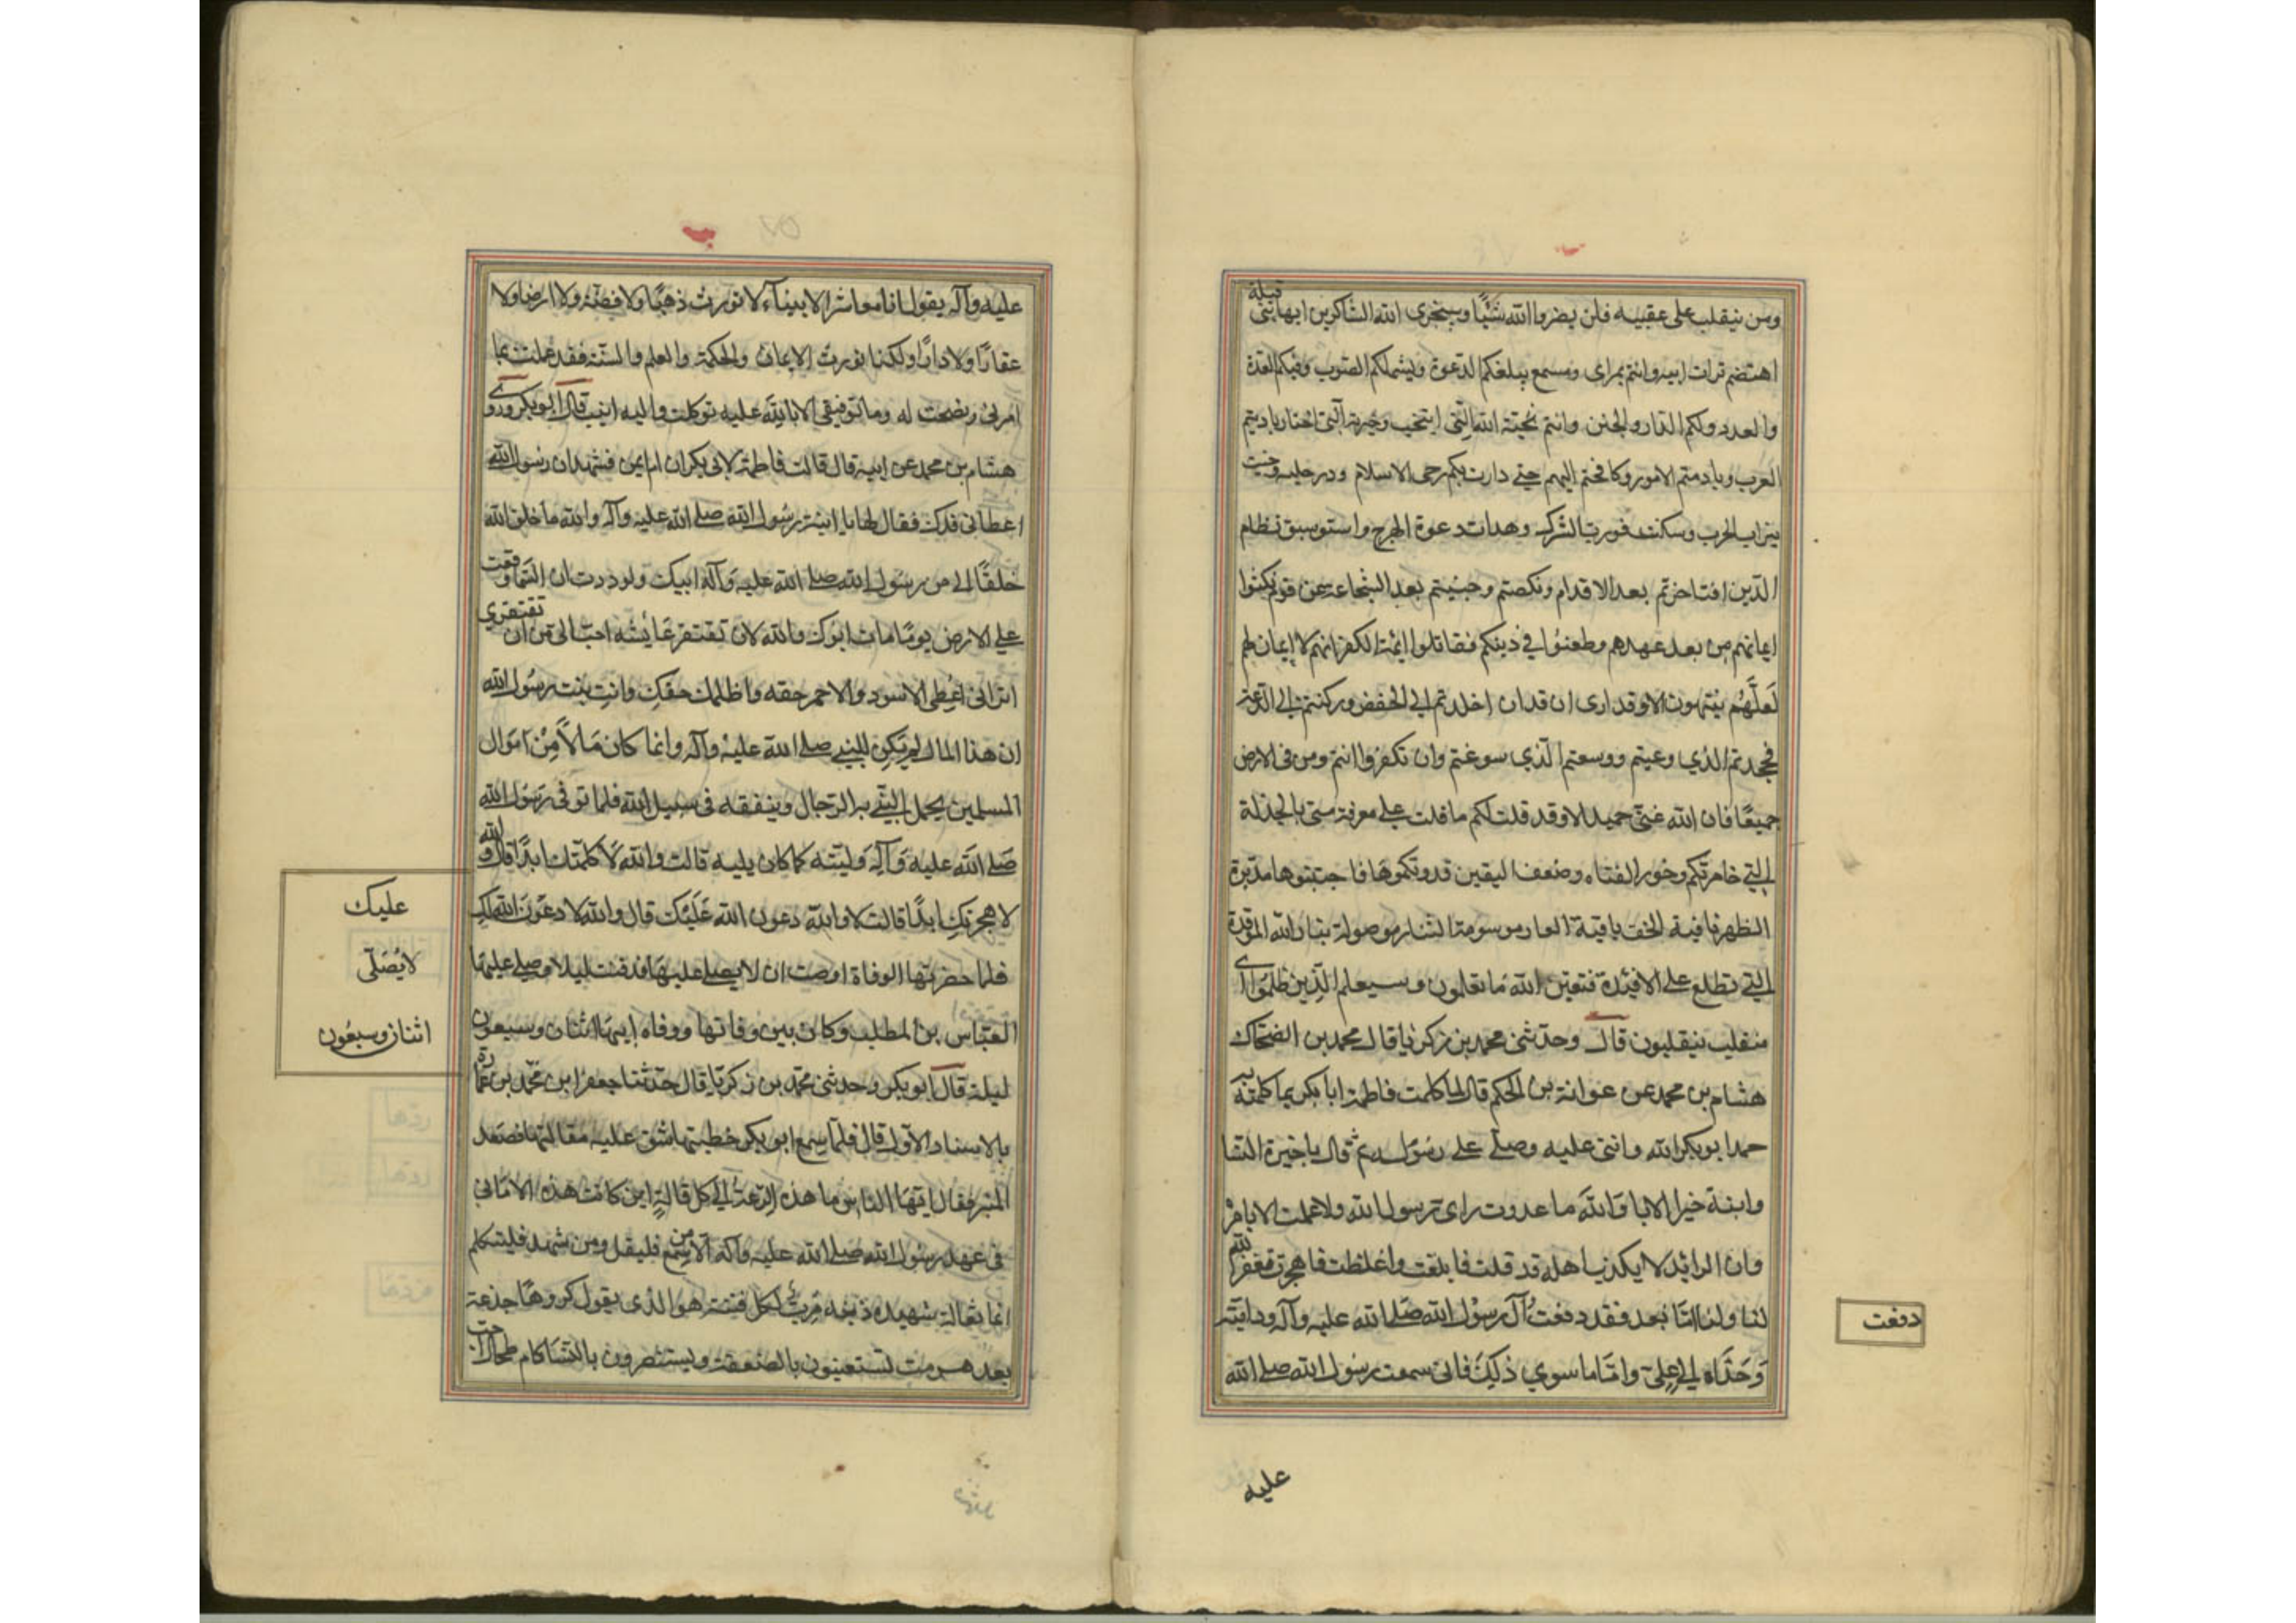 ومن ينقلب على عقبيه فلن يضروا الله شيًا وسيجزى الله الشاكرين ايها بنى قيلة
اهتضم تراث ابيه وانتم بمراى ومسمع يبلغكم الدعوة ويشملكم الصوت وفيكم العدة
والعدد ولكم الدار والجنن وانتم نخبته الله التى انتخب وخيرته التى اختار باديتم
العرب وبادهتم الامور وكافحتم البهم حتى دارت بكم رحى الاسلام ودر حلبه وخبت
نيران الحرب وسكنت فورت الشرك وهدات دعوة الهرج واستوسق نظام
الدين افتاخرتم بعد الاقدام ونكصتم وجبنتم بعد الشجاعة عن قوم نكثوا
ايمانهم من بعد عهدهم وطعنوا في دينكم فقاتلوا ائمة الكفر انهم لا ايمان لهم
لَعلّهُم ينتهون الا وقد ارى ان قد ان اخلدتم الى الخفض وركنتم الى الدعة
فجحدتم الذي وعيتم ووسعتم الذي سوغتم وان تكفروا انتم ومن فى الارض
جميعًا فان الله غنىّ حميد الا وقد قلت لكم ما قلت على معرفة منى بالخذلة
التي خامرتكم وخور الفتاه وضعف اليقين فدونكموها فاجتبنوها مدبرة
الظهر نافية الخف باقية العار موسومة الشنار موصولة بنار الله الموقدة
التي تطلع على الافئدة فبعين الله ما تعلمون وسيعلم الذين ظلموا اى
منقلب ينقلبون قال وحدثنى محمد بن زكريا قال محمد بن الضحاك
هشام بن محمد عن عوانة بن الحكم قال لما كلمت فاطمة ابا بكر بما كلمته به
حمد ابو بكر الله واثنى عليه وصلى على رسوله ثم قال يا خيرة النسا
وابنة خير الابا والله ما عدوت راى رسول الله ولا عملت الا بامره
وان الرائد لا يكذب اهله قد قلت فابلغت واغلظت فاهجرت فغفر الله
لنا ولك امّا بعد فقد دفعتُ آل رسول الله صلى الله عليه وآله ودابته
دفعت
وَحَذَاه الى علىّ وامّا ما سوي ذلك فانى سمعت رسول الله صلى الله
عليه
عليه وآله يقول انا معاشر الانبيآء لا نورث ذهبًا ولا فضّة ولا ارضا ولا
عقارًا ولا دارًا ولكنا نورث الايمان والحكمة والعلم والسنّة فقد عملت بما
امرنى ونصحت له وما توفيقى الا بالله عليه توكلت واليه انيب قال ابو بكر وروى
هشام بن محمد عن ابيه قال قالت فاطمة لابى بكر ان ام ايمن فشهد ان رسول الله
اعطانى فدك فقال لها يا ابنة رسول الله صلى الله عليه وآله والله ما خلق الله
خلقًا الى من رسول الله صلى الله عليه وآله ابيك ولوددت ان السّما وقعت
على الارض يومًا مات ابوك والله لان تفتقر عايشه احبّ الى من ان تفتقرى
اترانى اعطى الاسود والاحمر حقه واظلمك حقكِ وانتِ بنت رسول الله
ان هذا المال لم يكن للنبى صلى الله عليه وآله وانما كان مالًا مِنْ اموال
المسلمين يحمل النبيّ به الرجال وينفقه فى سبيل الله فلما توفى رسول الله
صلى الله عليه وآله وليته كما كان يليه قالت والله لا كلمتك ابدًا قال والله
لا هجرتكِ ابدًا قالت لا والله دعون الله عَلَيْك قال والله لا دعون الله لكِ
عليك
فلما حضرتها الوفاة اوصت ان لا يصلى عليها فدفنت ليلا وصلى عليها
لايُصَلّى
العباس بن المطلب وكان بين وفاتها ووفاه ابيها اثنان وسبعون
اثنان وسبعُون
ليلة قال ابو بكر وحدثنى محمّد بن زكريا قال حدّثنا جعفر ابن محمّد بن عمارة
بالاسناد الاول قال فلمّا سمع ابو بكر خطبتها شق عليه مقالتها فصعد
المنبر فقال ايّها الناس ما هذه الرّعة الى كل قالةٍ اين كانت هذه الامانى
فى عهد رسول الله صلى الله عليه وآله الا من سمع فليقل ومن شهد فليتكلم
انما ثعالة شهيده ذنبه مُرِبّ لكل فتنة هو الذى يقول كروهًا جذعة
بعد هرمت تستعينون بالضعفة ويستنصرون بالنسا كام طحال احب